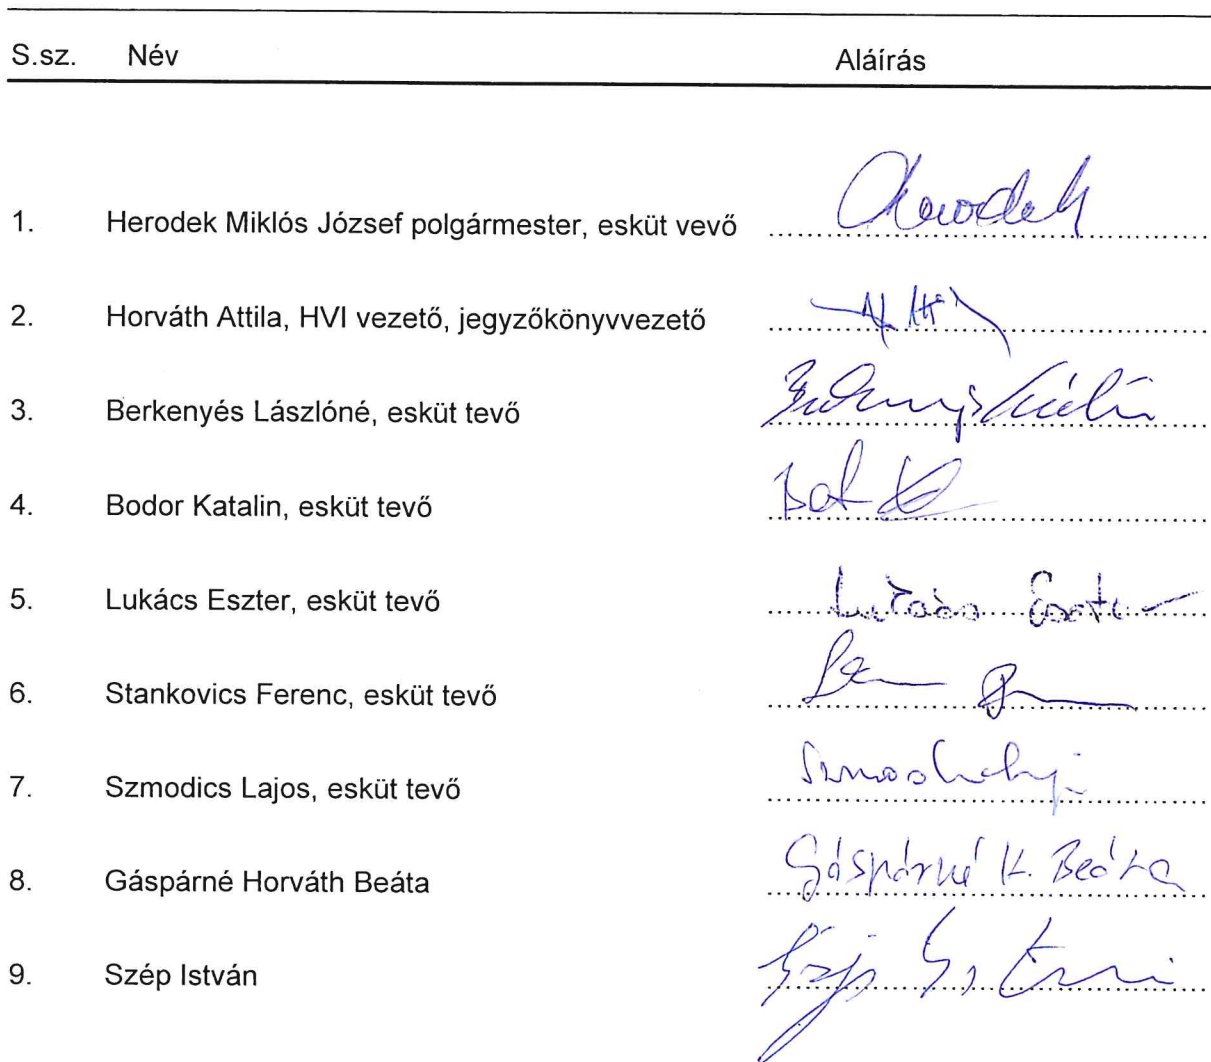 S.sz. Név Aláírás
1. Herodek Miklós József polgármester, esküt vevő Herodek
2. Horváth Attila, HVI vezető, jegyzőkönyvvezető
3. Berkenyés Lászlóné, esküt tevő
4. Bodor Katalin, esküt tevő
5. Lukács Eszter, esküt tevő Lukács Eszter
6. Stankovics Ferenc, esküt tevő
7. Szmodics Lajos, esküt tevő
8. Gáspárné Horváth Beáta Gáspárné H. Beáta
9. Szép István